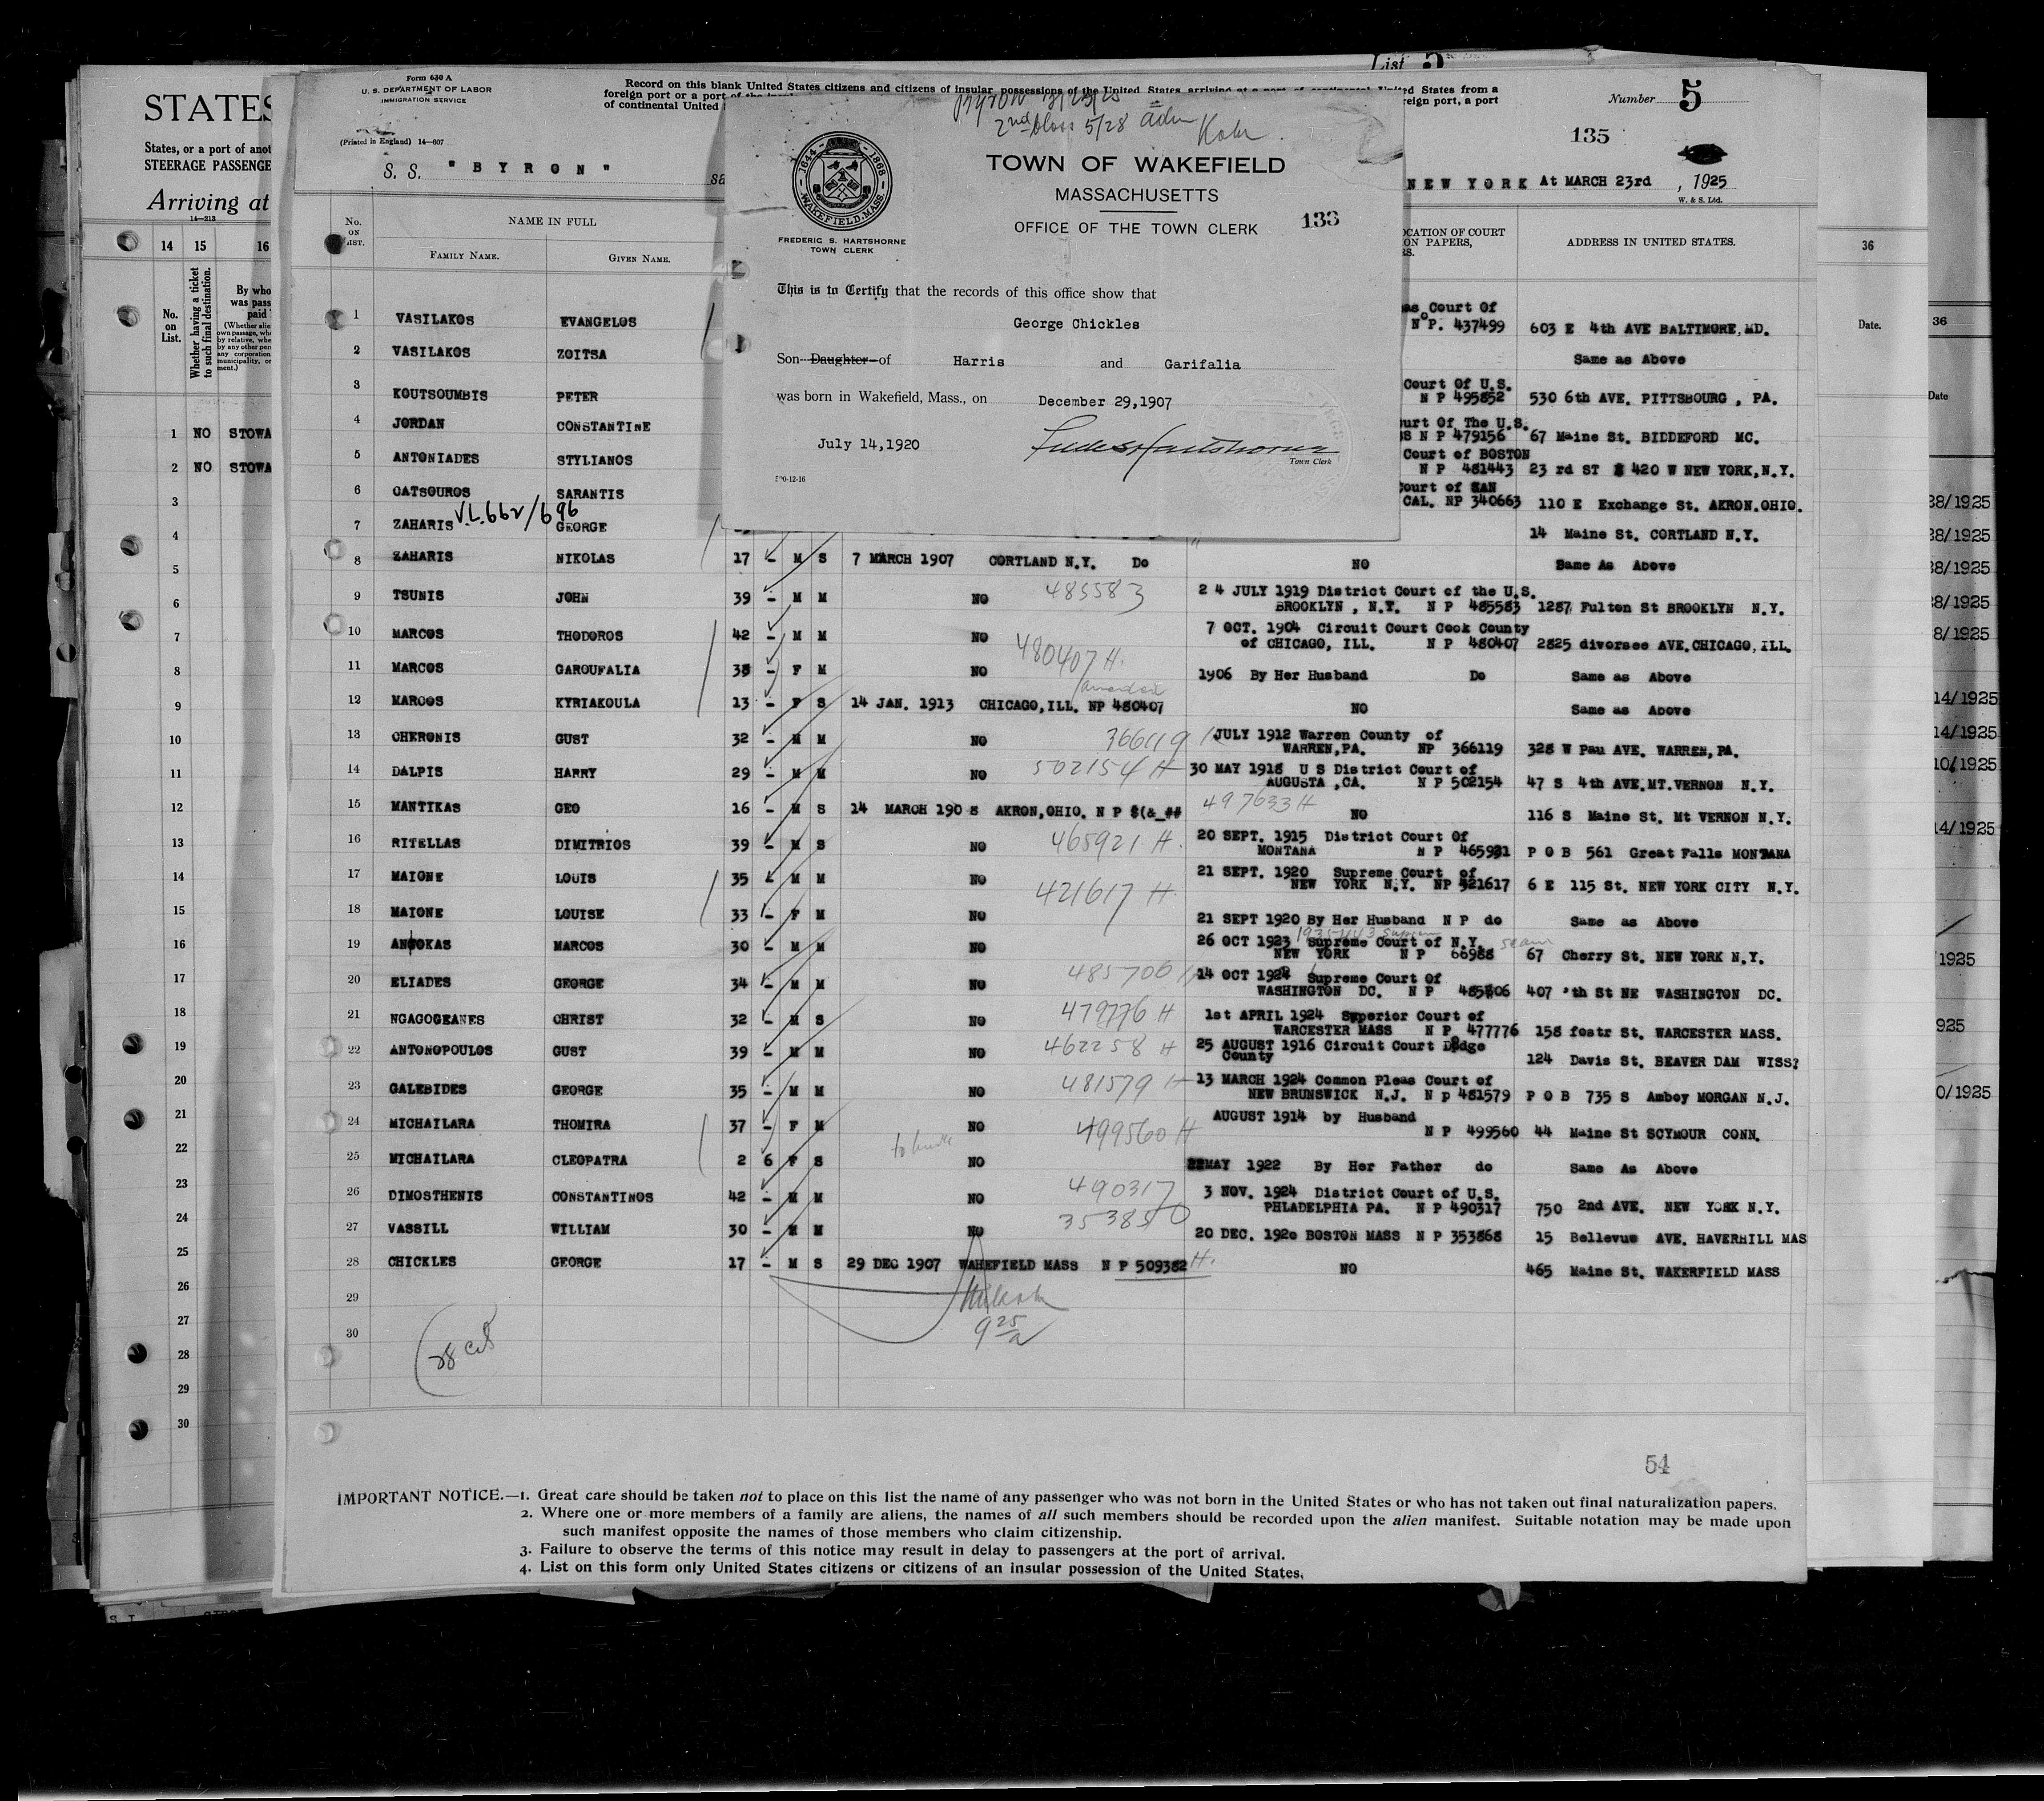 List 5
Form 630 A
U. S. DEPARTMENT OF LABOR
IMMIGRATION SERVICE
(Printed in England) 14—607
Record on this blank United States citizens and citizens of insular possessions of the United States arriving at a port of continental United States from a
foreign port or a port of the
of continental United
reign port, a port
Number 5
135
S. S. "BYRON"
NEW YORK At MARCH 23rd, 1925
W. & S. Ltd.
STATES
States, or a port of anot
STEERAGE PASSENGE
Arriving at
14—213
14 15 16
No. on List.
Whether having a ticket to such final destination.
By who
was pass
paid
(Whether alie
own passage, wh
by relative, whe
by any other per
any corporation
municipality, or
ment.)
1 NO STOWA
2 NO STOWA
3
4
5
6
7
8
9
10
11
12
13
14
15
16
17
18
19
20
21
22
23
24
25
26
27
28
29
30
BYRON 3/23/25
2nd Class 5/28 Adm
TOWN OF WAKEFIELD
MASSACHUSETTS
OFFICE OF THE TOWN CLERK
133
1644 1868
WAKEFIELD, MASS.
FREDERIC S. HARTSHORNE
TOWN CLERK
This is to Certify that the records of this office show that
George Chickles
Son Daughter of Harris and Garifalia
was born in Wakefield, Mass., on December 29,1907
July 14,1920
Town Clerk
No. ON LIST.
NAME IN FULL
FAMILY NAME. GIVEN NAME.
OCATION OF COURT
ON PAPERS,
RS.
ADDRESS IN UNITED STATES.
36
Date.
36
Date
1 VASILAKOS EVANGELOS as Court Of
N P. 437499 603 E 4th AVE BALTIMORE, MD.
2 VASILAKOS ZOITSA Same as Above
3 KOUTSOUMBIS PETER Court Of U.S.
N P 495852 530 6th AVE. PITTSBOURG , PA.
4 JORDAN CONSTANTINE ourt Of The U.S.
SS N P 479156 67 Maine St. BIDDEFORD MC.
5 ANTONIADES STYLIANOS Court of BOSTON
N P 481443 23 rd ST 420 W NEW YORK, N.Y.
6 CATSOUROS SARANTIS Court of SAN
CAL. NP 340663 110 E Exchange St. AKRON.OHIO.
V.L.662/696
7 ZAHARIS GEORGE 14 Maine St. CORTLAND N.Y.
8 ZAHARIS NIKOLAS 17 - M S 7 MARCH 1907 CORTLAND N.Y. Do NO Same As Above
9 TSUNIS JOHN 39 - M M NO 485583 2 4 JULY 1919 District Court of the U.S.
BROOKLYN , N.Y. N P 485583 1287 Fulton St BROOKLYN N.Y.
10 MARCOS THODOROS 42 - M M NO 480407 H. 7 OCT. 1904 Circuit Court Cook County
of CHICAGO, ILL. N P 480407 2825 divorsee AVE.CHICAGO, ILL.
11 MARCOS GAROUFALIA 38 - F M NO 1906 By Her Husband Do Same as Above
12 MARCOS KYRIAKOULA 13 - F S 14 JAN. 1913 CHICAGO, ILL. NP 480407 NO Same as Above
13 CHERONIS GUST 32 - M M NO 366119 JULY 1912 Warren County of
WARREN,PA. NP 366119 328 W Pau AVE. WARREN, PA.
14 DALPIS HARRY 29 - M M NO 502154 H 30 MAY 1918 U S District Court of
AUGUSTA ,CA. N P 502154 47 S 4th AVE.MT.VERNON N.Y.
15 MANTIKAS GEO 16 - M S 14 MARCH 190 8 AKRON, OHIO. N P $(&_## 497633 H NO 116 S Maine St. Mt VERNON N.Y.
16 RITELLAS DIMITRIOS 39 - M S NO 465921 H. 20 SEPT. 1915 District Court Of
MONTANA N P 465921 P O B 561 Great Falls MONTANA
17 MAIONE LOUIS 35 - M M NO 421617 H. 21 SEPT. 1920 Supreme Court of
NEW YORK N.Y. NP 421617 6 E 115 St. NEW YORK CITY N.Y.
18 MAIONE LOUISE 33 - F M NO 21 SEPT 1920 By Her Husband N P do Same as Above
19 ANTOKAS MARCOS 30 - M M NO 26 OCT 1923 Supreme Court of N.Y.
NEW YORK N P 66988 67 Cherry St. NEW YORK N.Y.
20 ELIADES GEORGE 34 - M M NO 485706 H 14 OCT 1924 Supreme Court of
WASHINGTON DC. N P 485806 407 'th St NE WASHINGTON DC.
21 NGAGOGEANES CHRIST 32 - M S NO 479776 H 1st APRIL 1924 Superior Court of
WARCESTER MASS N P 477776 158 fostr St. WARCESTER MASS.
22 ANTONOPOULOS GUST 39 - M M NO 462258 H 25 AUGUST 1916 Circuit Court Dodge
County 124 Davis St. BEAVER DAM WISS?
23 GALEBIDES GEORGE 35 - M M NO 481579 H 13 MARCH 1924 Common Pleas Court of
NEW BRUNSWICK N.J. N p 481579 P O B 735 S Amboy MORGAN N.J.
24 MICHAILARA THOMIRA 37 - F M NO 499560 H AUGUST 1914 by Husband
N P 499560 44 Maine St SCYMOUR CONN.
25 MICHAILARA CLEOPATRA 2 6 F S NO 22MAY 1922 By Her Father do Same As Above
26 DIMOSTHENIS CONSTANTINOS 42 - M M NO 490317 3 NOV. 1924 District Court of U.S.
PHLADELPHIA PA. N P 490317 750 2nd AVE. NEW YORK N.Y.
27 VASSILL WILLIAM 30 - M M NO 353850 20 DEC. 1920 BOSTON MASS N P 353868 15 Bellevue AVE. HAVERHILL MAS
28 CHICKLES GEORGE 17 - M S 29 DEC 1907 WAHEFIELD MASS N P 509382 H. NO 465 Maine St. WAKERFIELD MASS
29
30
9 25/a
28 cit
38/1925
38/1925
38/1925
38/1925
8/1925
14/1925
14/1925
10/1925
14/1925
/1925
925
0/1925
54
IMPORTANT NOTICE.—1. Great care should be taken not to place on this list the name of any passenger who was not born in the United States or who has not taken out final naturalization papers.
2. Where one or more members of a family are aliens, the names of all such members should be recorded upon the alien manifest. Suitable notation may be made upon
such manifest opposite the names of those members who claim citizenship.
3. Failure to observe the terms of this notice may result in delay to passengers at the port of arrival.
4. List on this form only United States citizens or citizens of an insular possession of the United States.